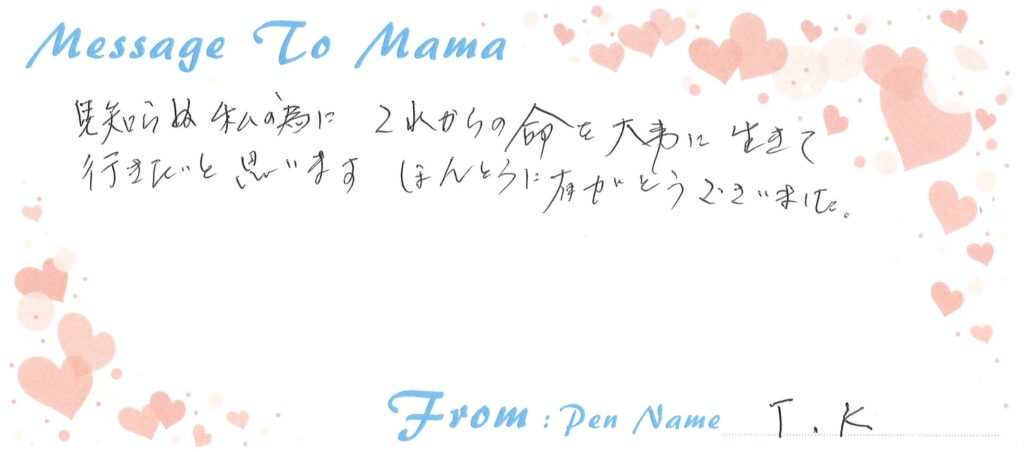 Message To Mama
見知らぬ私の為に これからの命を大事に生きて
行きたいと思います ほんとうに有がとうございました。
From : Pen Name T.K